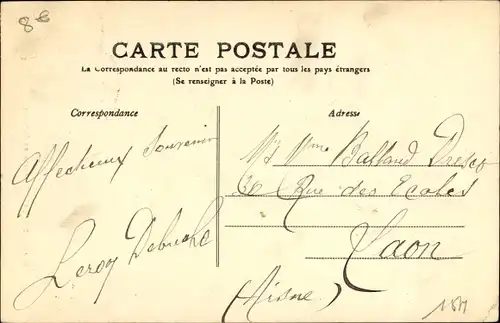 8€
CARTE POSTALE
La Correspondance au recto n'est pas acceptée par tous les pays étrangers
(Se renseigner à la Poste)
Correspondance
Adresse
Affectueux Souvenir
Leroy Debuche
Mme Balland
Rue des Ecoles
Laon
(Aisne)